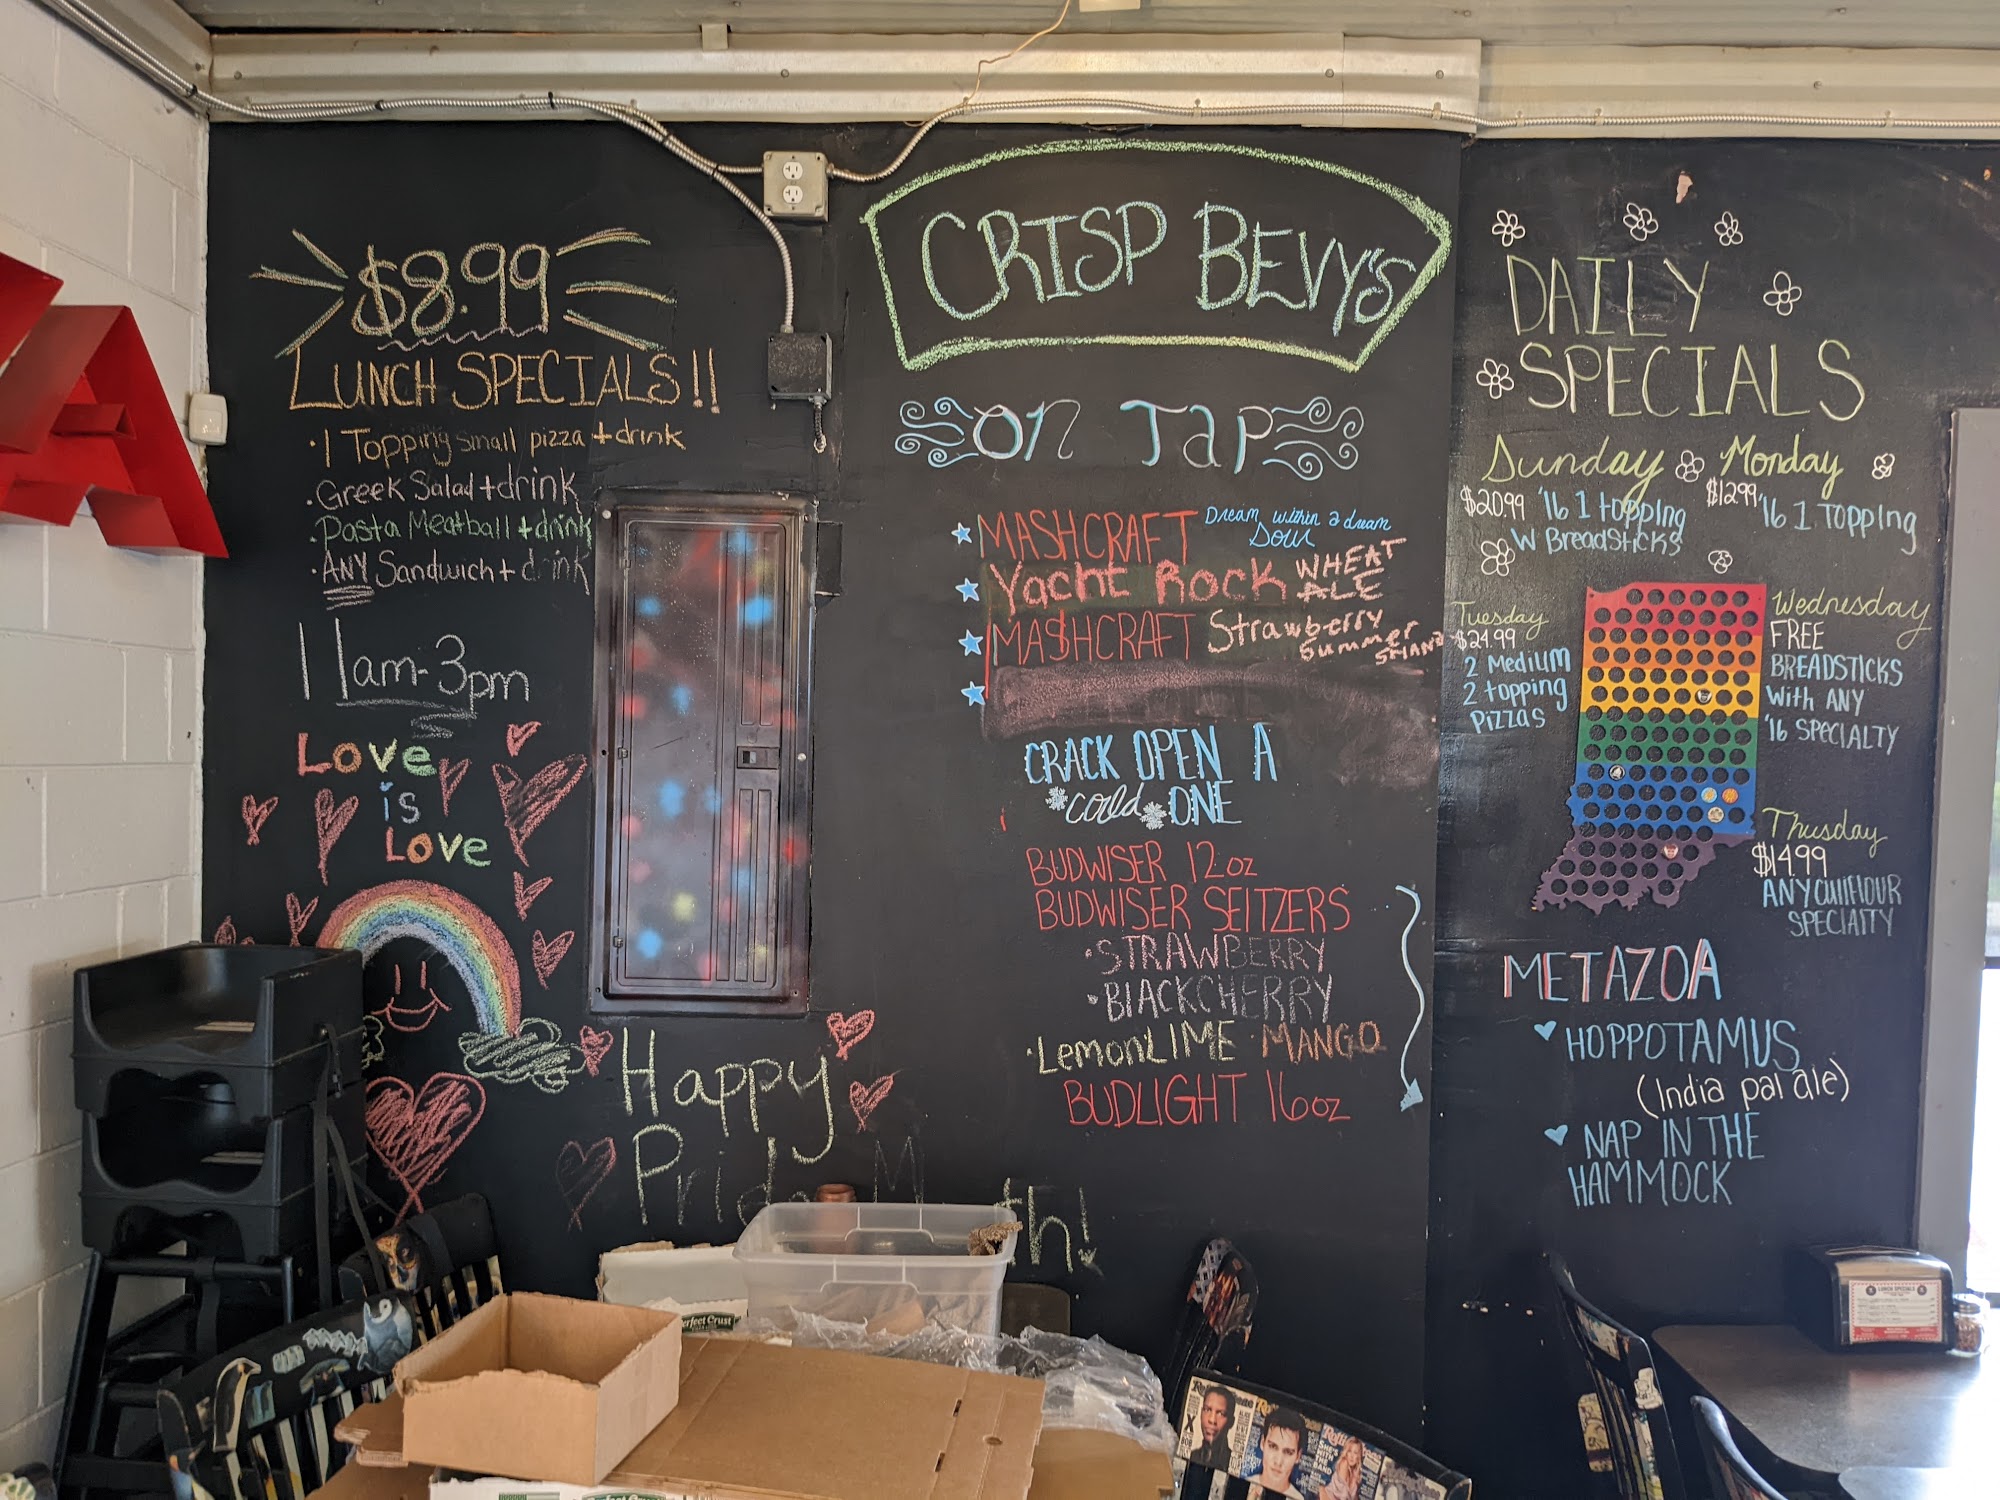 $8.99
LUNCH SPECIALS!!
· 1 Topping small pizza + drink
· Greek Salad + drink
· Pasta Meatball + drink
· ANY Sandwich + drink
11am-3pm
Love
is
Love
Happy
Pride M th!
CRISP BEVY'S
ON TAP
MASHCRAFT Dream within a dream
Sour
Yacht Rock WHEAT
ALE
MA$HCRAFT Strawberry
Summer
SHANDY
CRACK OPEN A
cold ONE
BUDWISER 12oz
BUDWISER SEITZERS
· STRAWBERRY
· BLACKCHERRY
· LemonLIME · MANGO
BUDLIGHT 16oz
DAILY
SPECIALS
Sunday
$20.99 '16 1 topping
W BreadSticks
Monday
$12.99 '16 1 TOPPING
Tuesday
$24.99
2 Medium
2 topping
Pizzas
Wednesday
FREE
BREADSTICKS
With ANY
'16 SPECIALTY
Thusday
$14.99
ANY CUliFlOUR
SPECIAlTY
METAZOA
HOPPOTAMUS
(India pal ale)
NAP IN THE
HAMMOCK
A
Perfect Crust
LUNCH SPECIALS